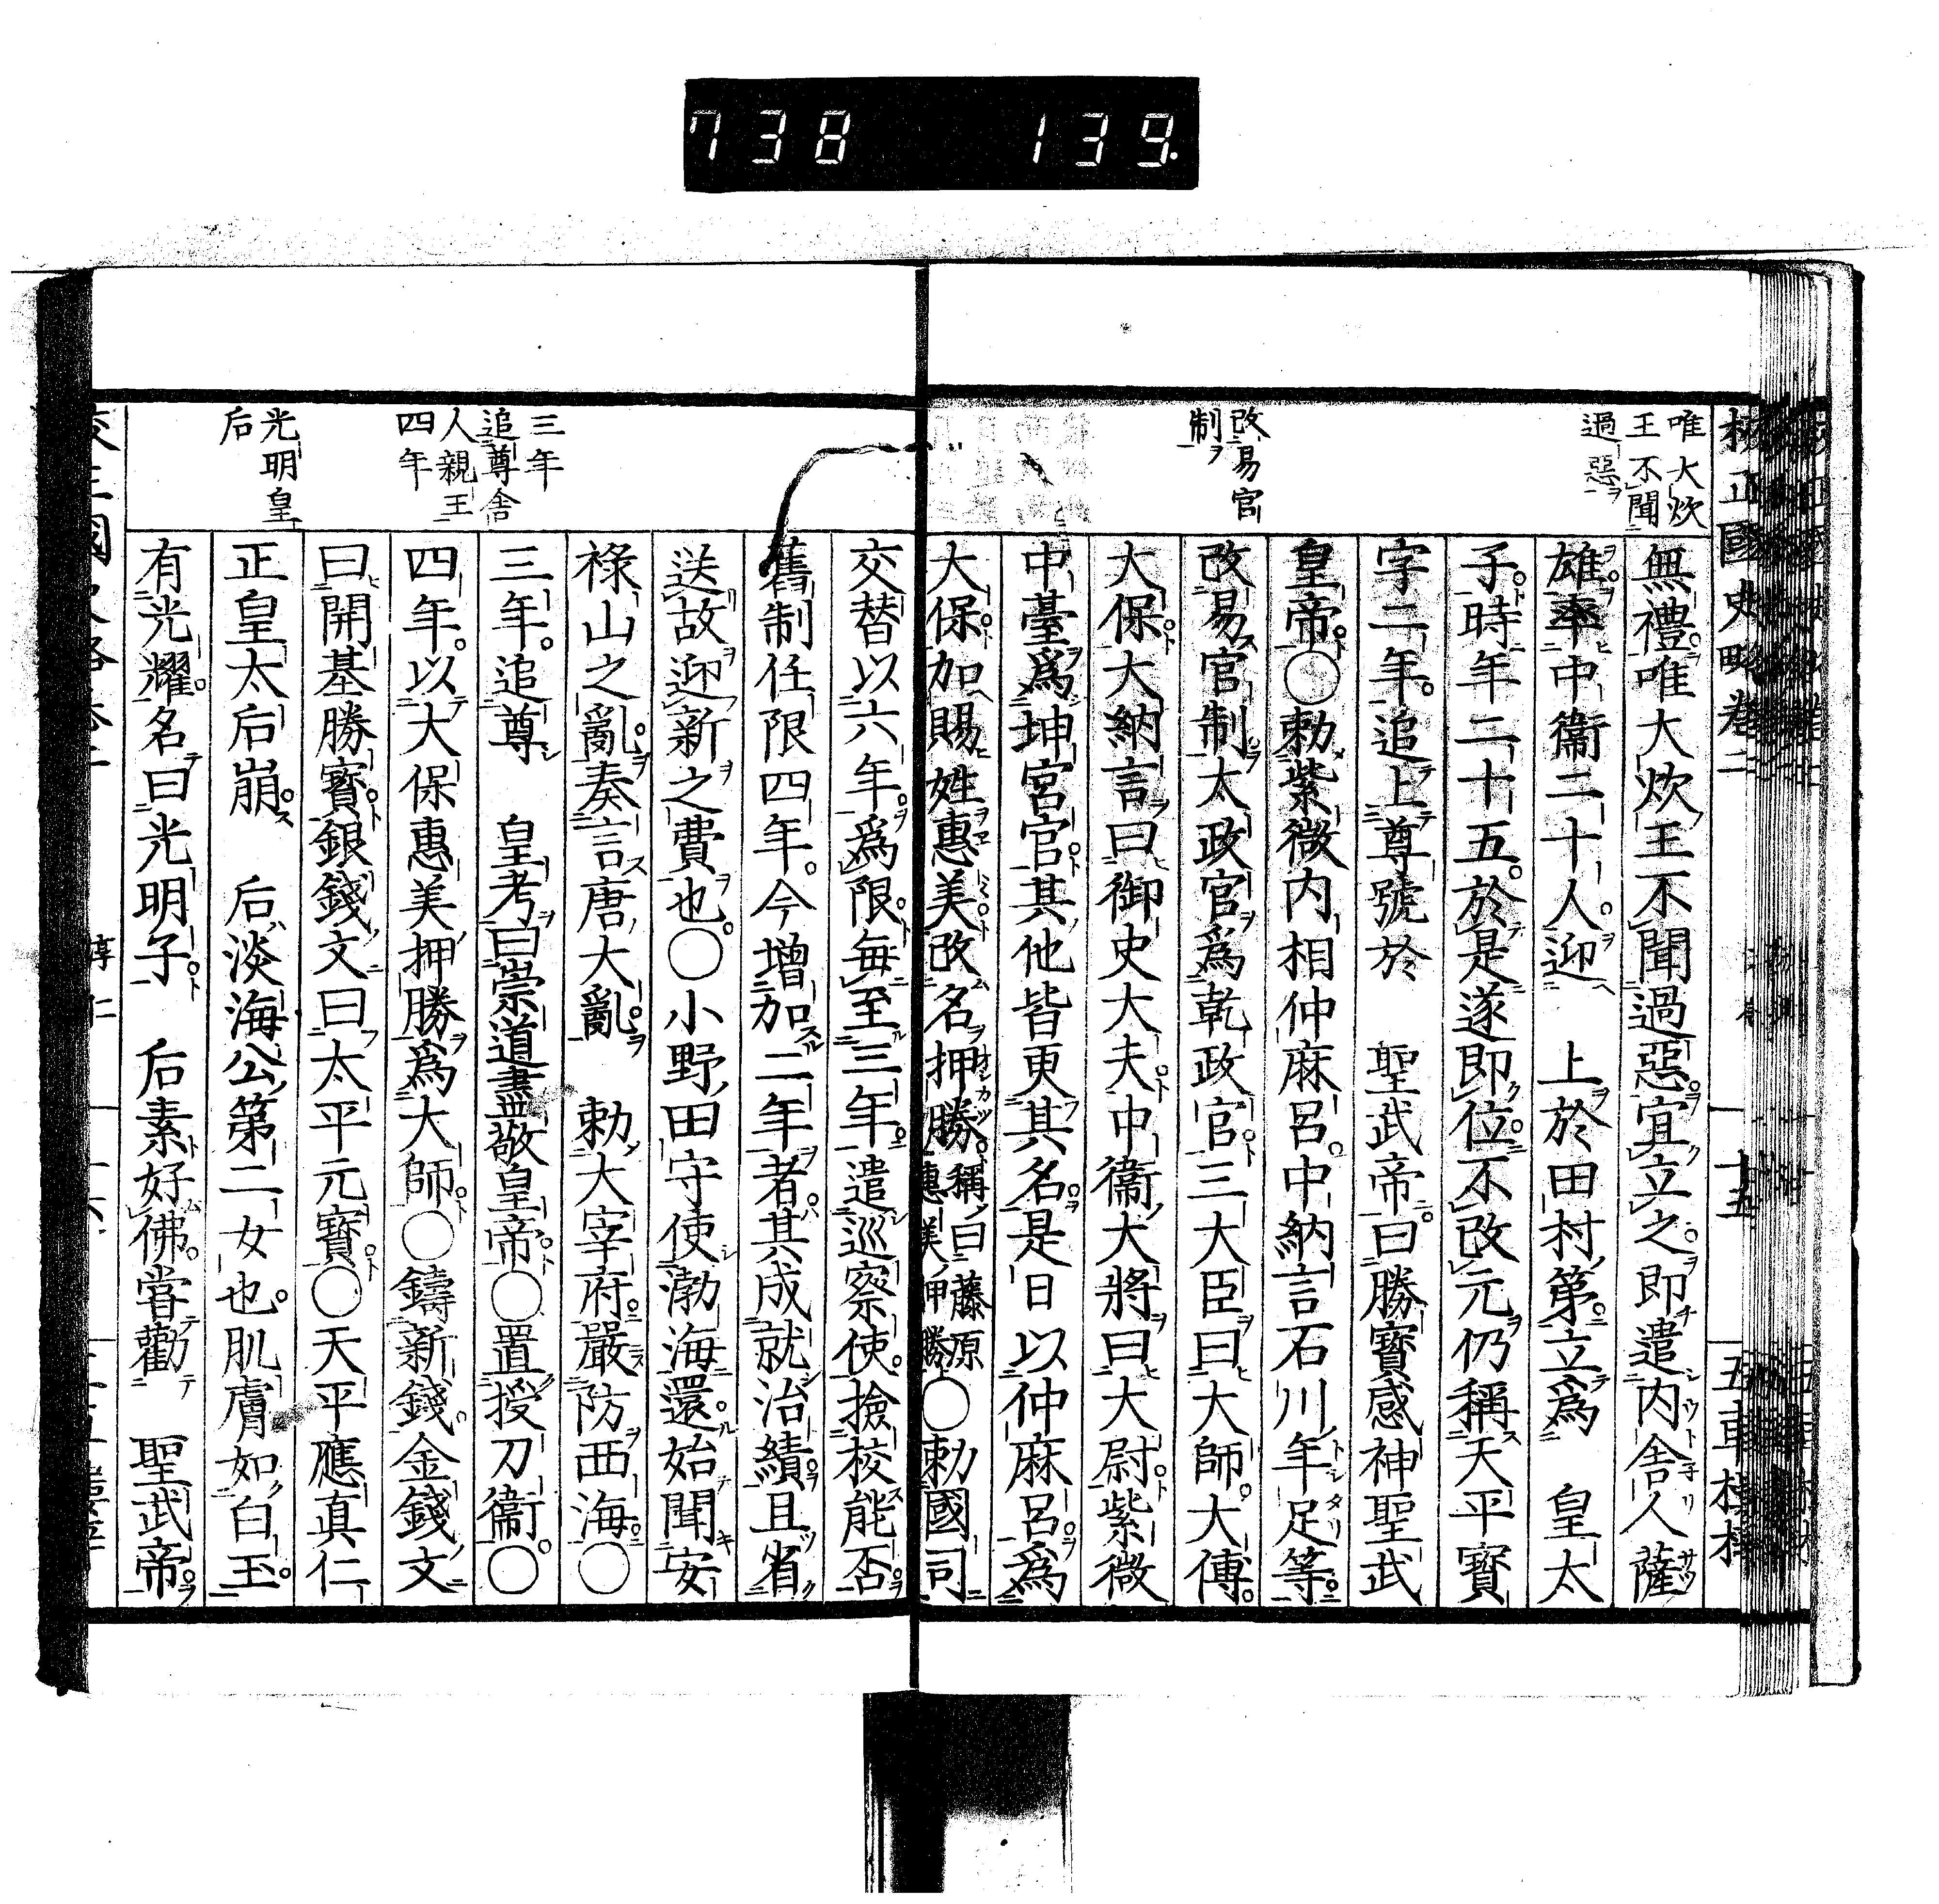 738 139
校正國史略卷二 十五 五車樓梓
唯大炊
王不聞
過惡
改易官
制
無禮唯大炊王不聞過惡宜立之即遣内舎人薩
雄率中衞二十人迎 上於田村第立爲 皇太
子時年二十五於是遂即位不改元仍稱天平寳
字二年追上尊號於 聖武帝曰勝寳感神聖武
皇帝○勅紫微内相仲麻呂中納言石川年足等
改易官制太政官爲乾政官三大臣曰大師大傅
大保大納言曰御史大夫中衞大將曰大尉紫微
中臺爲坤宮官其他皆更其名是日以仲麻呂爲
大保加賜姓惠美改名押勝稱曰藤原惠美押勝○勅國司
三年
追尊舎
人親王
四年
光明皇
后
交替以六年爲限毎至三年遣巡察使撿校能否
舊制任限四年今增加二年者其成就治績且省
送故迎新之費也○小野田守使渤海還始聞安
祿山之亂奏言唐大亂 勅大宰府嚴防西海○
三年追尊 皇考曰崇道盡敬皇帝○置授刀衞○
四年以大保惠美押勝爲大師○鑄新錢金錢文
曰開基勝寳銀錢文曰太平元寳○天平應真仁
正皇太后崩 后淡海公第二女也肌膚如白玉
有光耀名曰光明子 后素好佛嘗勸 聖武帝
淳仁